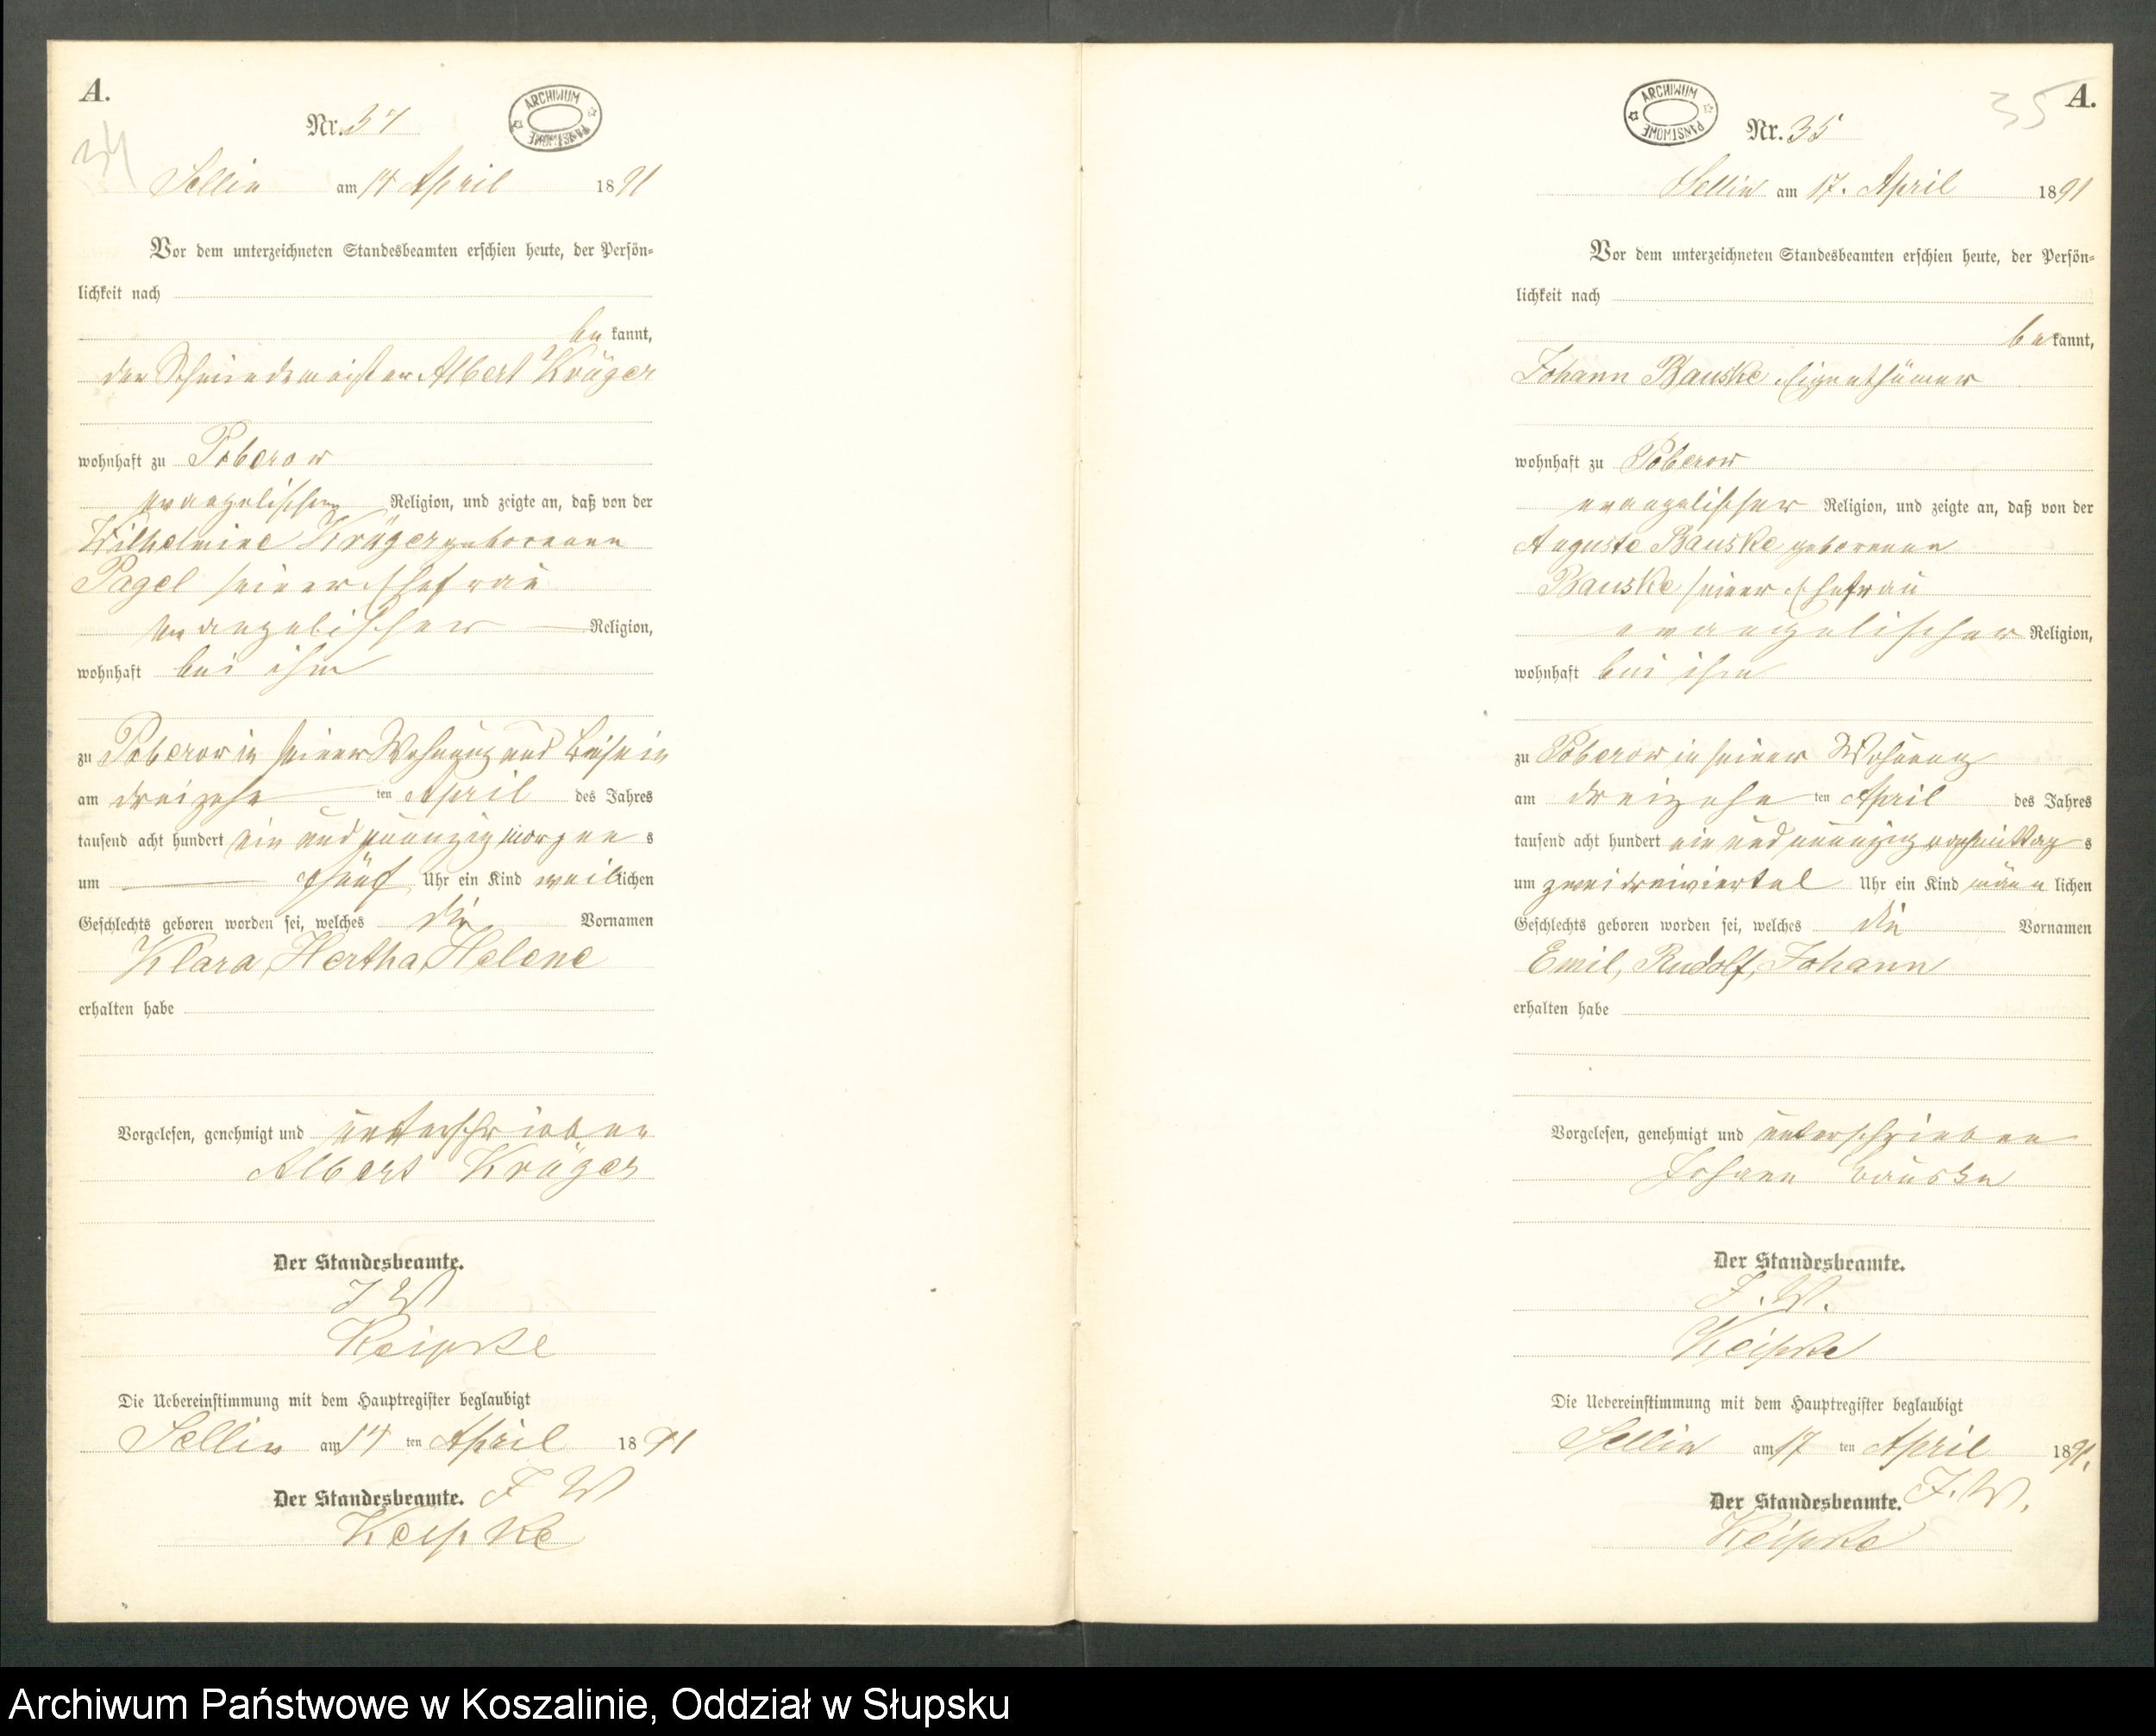 A.
34
Nr. 34
ARCHIWUM PAŃSTWOWE
Sellin am 14 April 1891
Vor dem unterzeichneten Standesbeamten erschien heute, der Persön-
lichkeit nach
be kannt,
der Schmiedemeister Albert Krüger
wohnhaft zu Poberow
evangelischer Religion, und zeigte an, daß von der
Wilhelmine Krüger geborenen
Pagel seiner Ehefrau
evangelischer Religion,
wohnhaft bei ihm
zu Poberow in seiner Wohnung und Beisein
am dreizehn ten April des Jahres
tausend acht hundert ein und neunzig morgen s
um fünf Uhr ein Kind weiblichen
Geschlechts geboren worden sei, welches die Vornamen
Klara, Hertha, Helene
erhalten habe
Vorgelesen, genehmigt und unterschrieben
Albert Krüger
Der Standesbeamte.
J W
Keipke
Die Uebereinstimmung mit dem Hauptregister beglaubigt
Sellin am 14 ten April 1891
Der Standesbeamte. J W
Keipke
35
A.
ARCHIWUM PAŃSTWOWE
Nr. 35
Sellin am 17. April 1891
Vor dem unterzeichneten Standesbeamten erschien heute, der Persön-
lichkeit nach
be kannt,
Johann Bauske Eigenthümer
wohnhaft zu Poberow
evangelischer Religion, und zeigte an, daß von der
Auguste Bauske geborenen
Bauske seiner Ehefrau
evangelischer Religion,
wohnhaft bei ihm
zu Poberow in seiner Wohnung
am dreizehn ten April des Jahres
tausend acht hundert ein und neunzig nachmittag s
um zwei dreiviertel Uhr ein Kind männlichen
Geschlechts geboren worden sei, welches die Vornamen
Emil, Rudolf, Johann
erhalten habe
Vorgelesen, genehmigt und unterschrieben
Johann Bauske
Der Standesbeamte.
J. W.
Keipke
Die Uebereinstimmung mit dem Hauptregister beglaubigt
Sellin am 17 ten April 1891.
Der Standesbeamte. J. W.
Keipke
Archiwum Państwowe w Koszalinie, Oddział w Słupsku